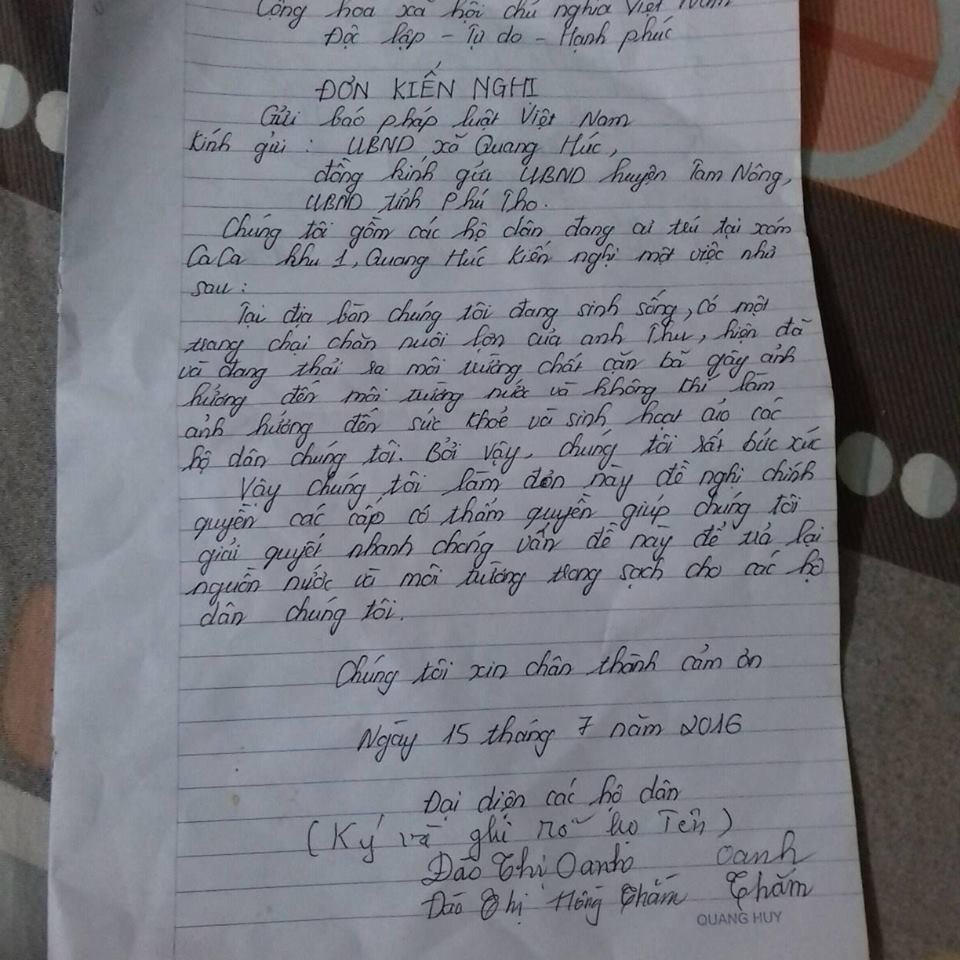 Cộng hòa xã hội chủ nghĩa Việt Nam
Độc lập - Tự do - Hạnh phúc
ĐƠN KIẾN NGHI
Gửi báo pháp luật Việt Nam
Kính gửi : UBND xã Quang Húc,
đồng kính gửi UBND huyện Tam Nông,
UBND tỉnh Phú Thọ.
Chúng tôi gồm các hộ dân đang cư trú tại xóm
CaCa khu 1, Quang Húc kiến nghị một việc như
sau :
Tại địa bàn chúng tôi đang sinh sống, có một
trang chại chăn nuôi lợn của anh Thư, hiện đã
và đang thải ra môi trường chất cặn bã gây ảnh
hưởng đến môi trường nước và không khí làm
ảnh hưởng đến sức khoẻ và sinh hoạt của các
hộ dân chúng tôi. Bởi vậy, chúng tôi rất bức xúc
Vậy chúng tôi làm đơn này đề nghị chính
quyền các cấp có thẩm quyền giúp chúng tôi
giải quyết nhanh chóng vấn đề này để trả lại
nguồn nước và môi trường trong sạch cho các hộ
dân chúng tôi.
Chúng tôi xin chân thành cảm ơn
Ngày 15 tháng 7 năm 2016
Đại diện các hộ dân
(Ký và ghi rõ họ Tên)
Đào Thị Oanh Oanh
Đào Thị Hồng Thắm Thắm
QUANG HUY